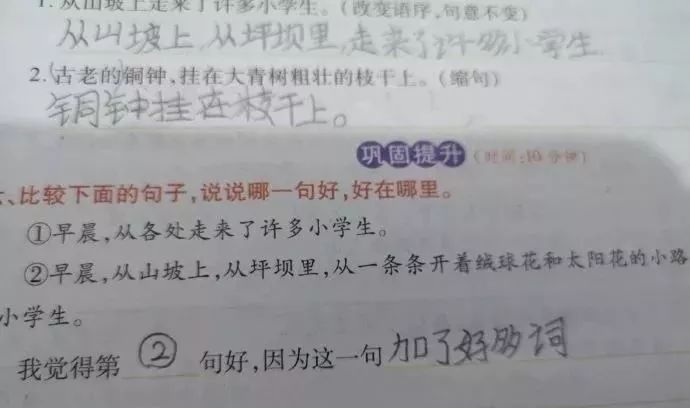 1.从山坡上走来了许多小学生。(改变语序,句意不变)
从山坡上,从坪坝里,走来了许多小学生
2.(古老的)铜钟,挂在大青树粗壮的枝干上。(缩句)
铜钟挂在枝干上。
巩固提升 (时间:10分钟)
六、比较下面的句子,说说哪一句好,好在哪里。
①早晨,从各处走来了许多小学生。
②早晨,从山坡上,从坪坝里,从一条条开着绒球花和太阳花的小路
小学生。
我觉得第 ② 句好,因为这一句加了好多词